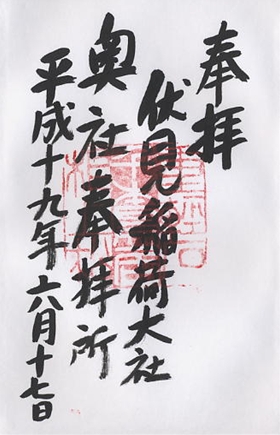 奉拝
伏見稲荷大社
奥社奉拝所
平成十九年六月十七日